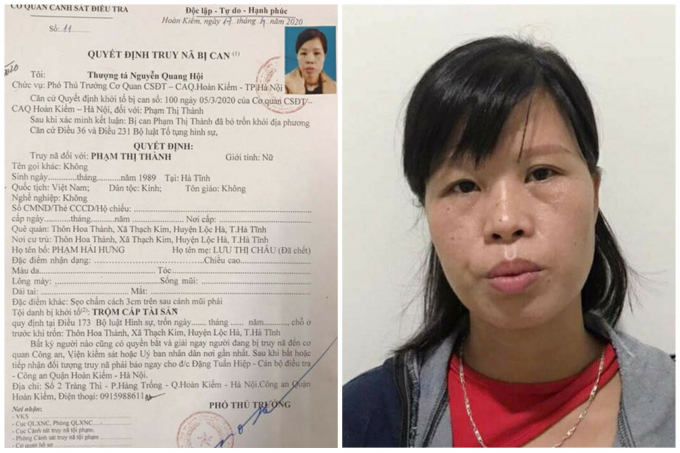 CƠ QUAN CẢNH SÁT ĐIỀU TRA
Độc lập - Tự do - Hạnh phúc
Số: 11
Hoàn Kiếm, ngày 17 tháng 4 năm 2020
QUYẾT ĐỊNH TRUY NÃ BỊ CAN (1)
Tôi: Thượng tá Nguyễn Quang Hội
Chức vụ: Phó Thủ Trưởng Cơ Quan CSĐT – CAQ.Hoàn Kiếm - TP.Hà Nội
Căn cứ Quyết định khởi tố bị can số: 100 ngày 05/3/2020 của Cơ quan CSĐT–
CAQ Hoàn Kiếm – Hà Nội, đối với: Phạm Thị Thành
Sau khi xác minh kết luận: Bị can Phạm Thị Thành đã bỏ trốn khỏi địa phương
Căn cứ Điều 36 và Điều 231 Bộ luật Tố tụng hình sự,
QUYẾT ĐỊNH:
Truy nã đối với: PHẠM THỊ THÀNH Giới tính: Nữ
Tên gọi khác: Không
Sinh ngày.........tháng.........năm 1989 Tại: Hà Tĩnh
Quốc tịch: Việt Nam; Dân tộc: Kinh; Tôn giáo: Không
Nghề nghiệp: Không
Số CMND/Thẻ CCCD/Hộ chiếu:
cấp ngày.........tháng.........năm Nơi cấp:
Quê quán: Thôn Hoa Thành, Xã Thạch Kim, Huyện Lộc Hà, T.Hà Tĩnh
Nơi cư trú: Thôn Hoa Thành, Xã Thạch Kim, Huyện Lộc Hà, T.Hà Tĩnh
Họ tên bố: PHẠM HẢI HƯNG Họ tên mẹ: LƯU THỊ CHÂU (Đã chết)
Đặc điểm nhận dạng: Chiều cao
Màu da Tóc
Lông mày: Sống mũi:
Dái tai: Mắt:
Đặc điểm khác: Sẹo chấm cách 3cm trên sau cánh mũi phải
Tội danh bị khởi tố(2): TRỘM CẮP TÀI SẢN
quy định tại Điều 173 Bộ luật Hình sự, trốn ngày....... tháng ...... năm......, chỗ ở
trước khi trốn: Thôn Hoa Thành, Xã Thạch Kim, Huyện Lộc Hà, T.Hà Tĩnh
Bất kỳ người nào cũng có quyền bắt và giải ngay người đang bị truy nã đến cơ
quan Công an, Viện kiểm sát hoặc Uỷ ban nhân dân nơi gần nhất. Sau khi bắt hoặc
tiếp nhận đối tượng truy nã phải báo ngay cho đ/c Đặng Tuấn Hiệp - Cán bộ điều tra
- Công an Quận Hoàn Kiếm - Hà Nội.
Địa chỉ: Số 2 Tràng Thi - P.Hàng Trống - Q.Hoàn Kiếm - Hà Nội.Công an Quận
Hoàn Kiếm, Điện thoại: 0915988611
Nơi nhận:
PHÓ THỦ TRƯỞNG
- VKS
- Cục QLXNC, Phòng QLXNC
- Cục Cảnh sát truy nã tội phạm
- Phòng Cảnh sát truy nã tội phạm.
- Cơ quan hồ sơ